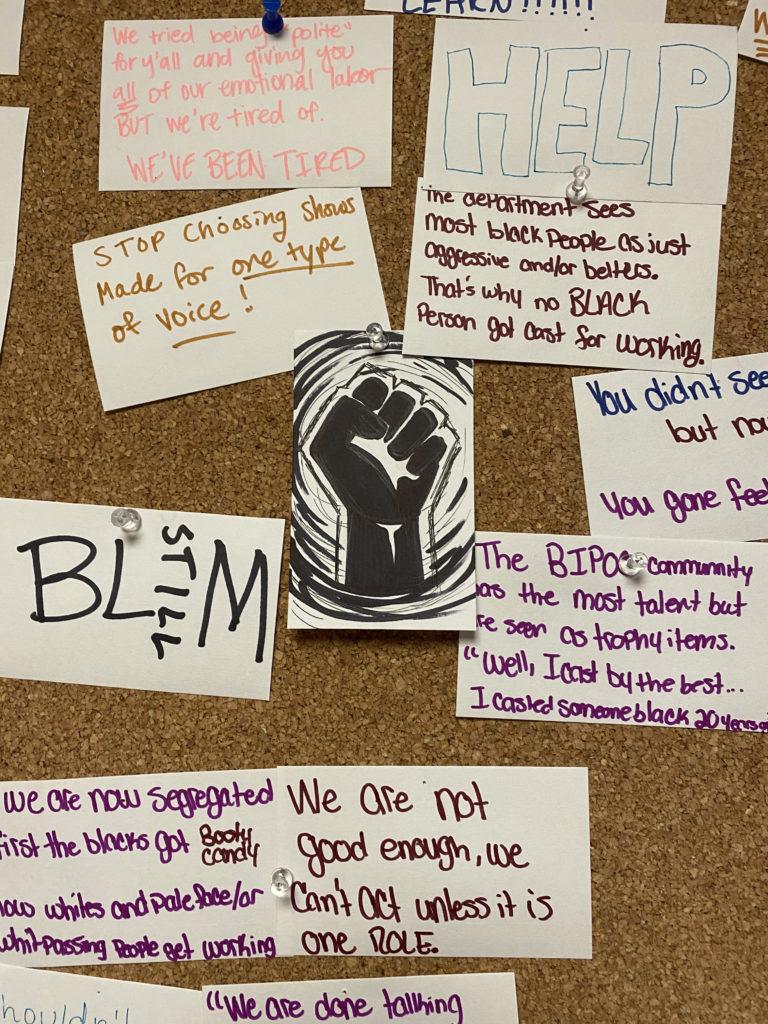 LEARN!!!!!!
We tried being "polite"
for y'all and giving you
all of our emotional labor
BUT we're tired of.
WE'VE BEEN TIRED
HELP
STOP Choosing Shows
Made for one type
of voice!
The department sees
most black People as just
aggressive and/or belters.
That's why no BLACK
Person got cast for working.
You didn't see
but now
You gone feel
BL STILL M
The BIPOC community
has the most talent but
re seen as trophy items.
"Well, I cast by the best...
I casted someone black 20 years ag
we are now segregated
first the blacks got Booty
candy
now whites and paleface/or
whit-passing People get working
We are not
good enough, we
Can't act unless it is
one ROLE.
houldn't
"We are done talking